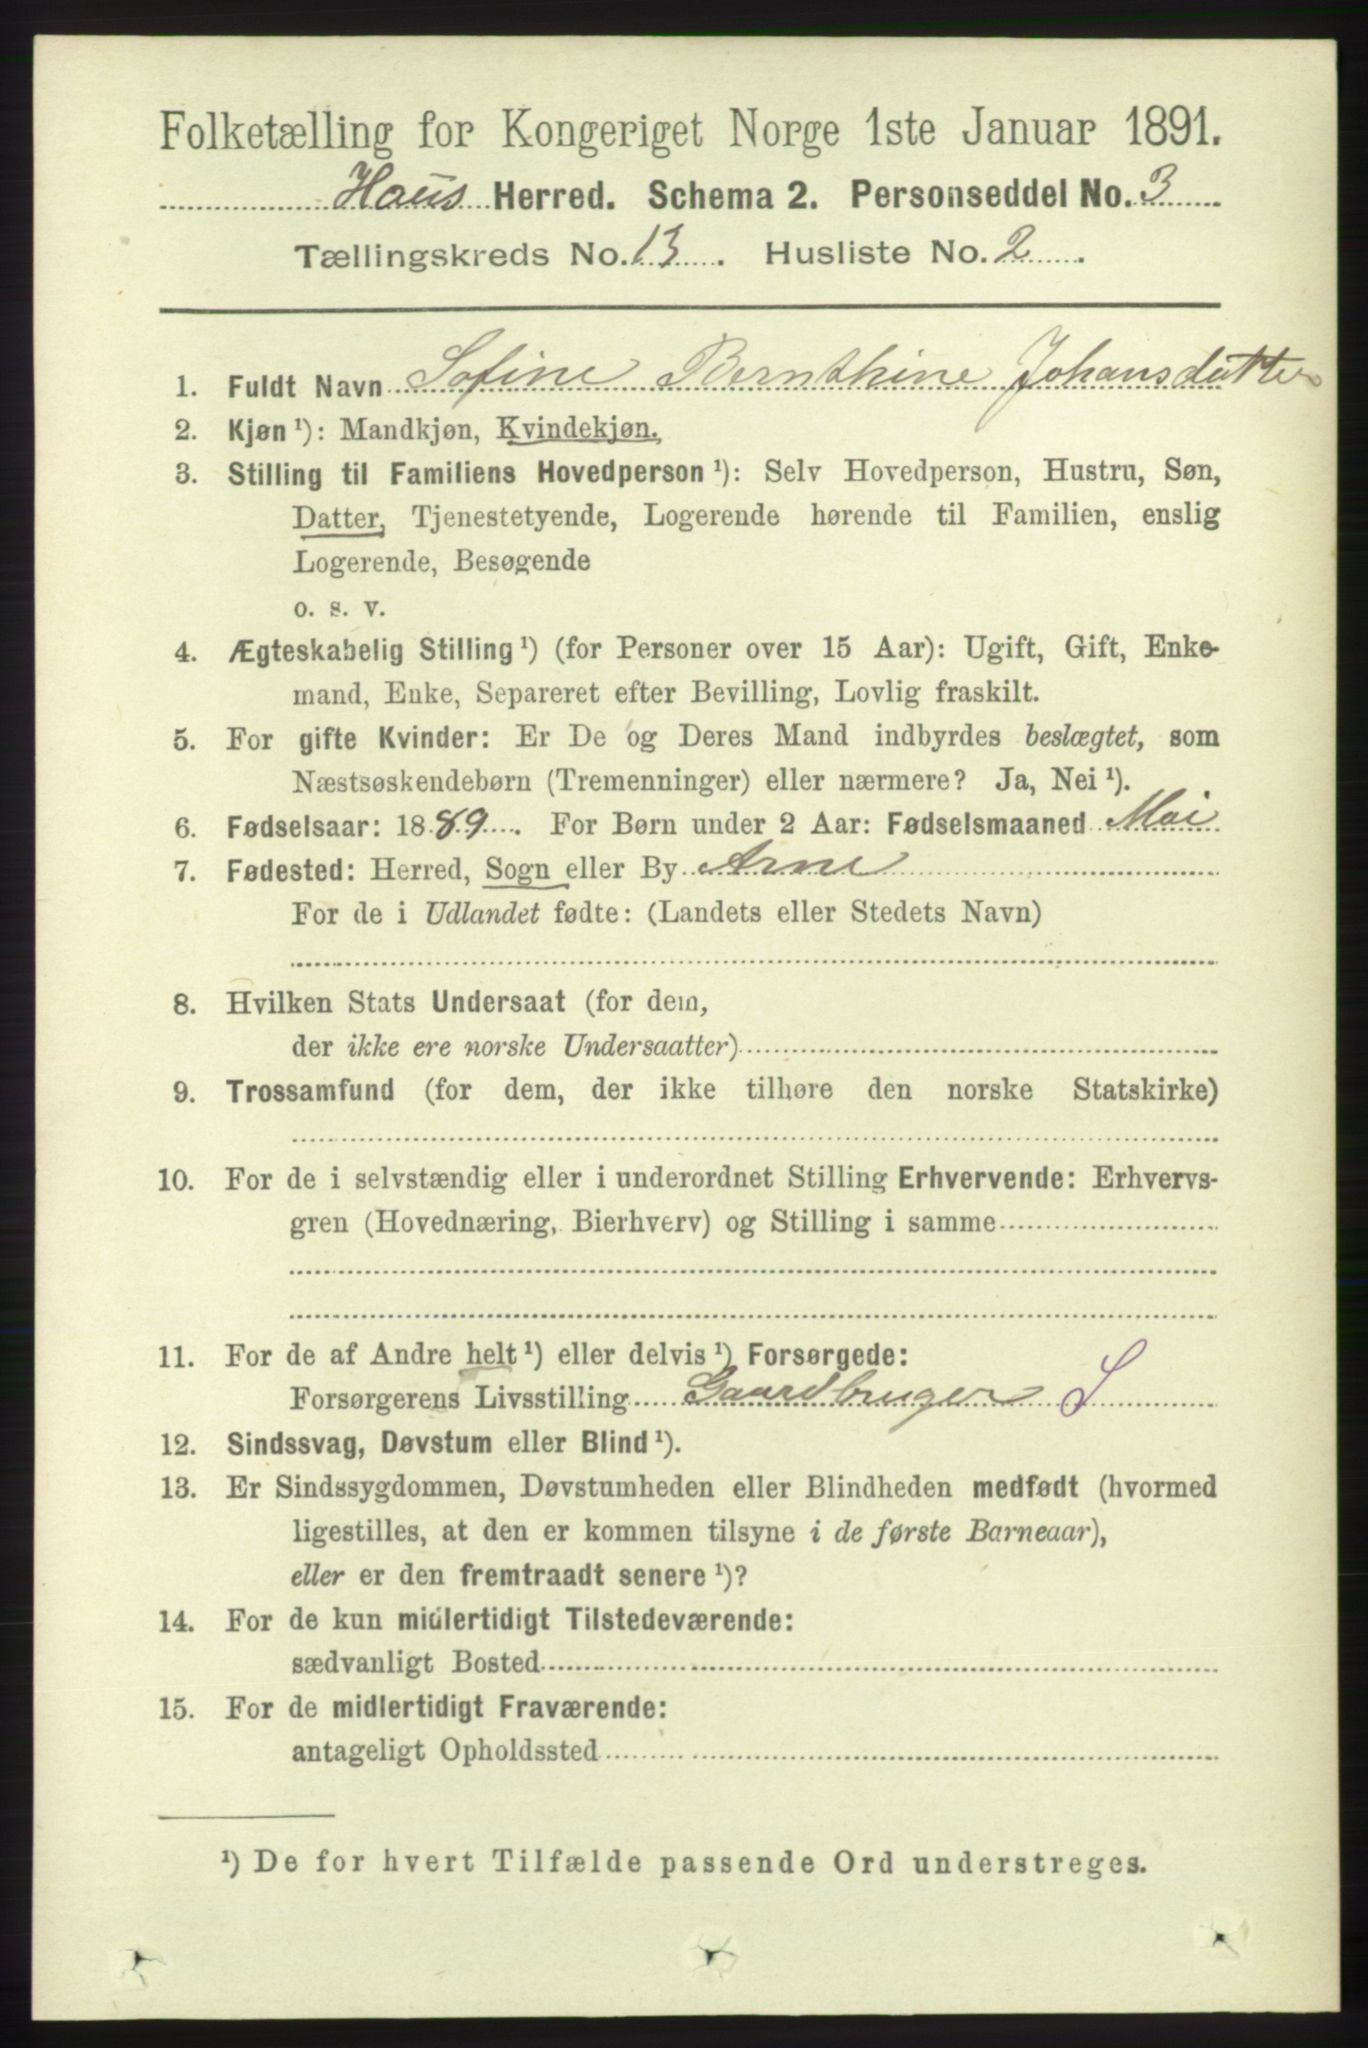 Folketælling for Kongeriget Norge 1ste Januar 1891.
Haus Herred. Schema 2. Personseddel No. 3
Tællingskreds No. 13. Husliste No. 2.
1. Fuldt Navn Sofine Bernthine Johansdatter
2. Kjøn ¹): Mandkjøn, Kvindekjøn.
3. Stilling til Familiens Hovedperson ¹): Selv Hovedperson, Hustru, Søn,
Datter, Tjenestetyende, Logerende hørende til Familien, enslig
Logerende, Besøgende
o. s. v.
4. Ægteskabelig Stilling ¹) (for Personer over 15 Aar): Ugift, Gift, Enke-
mand, Enke, Separeret efter Bevilling, Lovlig fraskilt.
5. For gifte Kvinder: Er De og Deres Mand indbyrdes beslægtet, som
Næstsøskendebørn (Tremenninger) eller nærmere? Ja, Nei ¹).
6. Fødselsaar: 1889. For Børn under 2 Aar: Fødselsmaaned Mai
7. Fødested: Herred, Sogn eller By Arne
For de i Udlandet fødte: (Landets eller Stedets Navn)
8. Hvilken Stats Undersaat (for dem,
der ikke ere norske Undersaatter)
9. Trossamfund (for dem, der ikke tilhøre den norske Statskirke)
10. For de i selvstændig eller i underordnet Stilling Erhvervende: Erhvervs-
gren (Hovednæring, Bierhverv) og Stilling i samme
11. For de af Andre helt ¹) eller delvis ¹) Forsørgede:
Forsørgerens Livsstilling Gaardbruger S
12. Sindssvag, Døvstum eller Blind ¹).
13. Er Sindssygdommen, Døvstumheden eller Blindheden medfødt (hvormed
ligestilles, at den er kommen tilsyne i de første Barneaar),
eller er den fremtraadt senere ¹)?
14. For de kun midlertidigt Tilstedeværende:
sædvanligt Bosted
15. For de midlertidigt Fraværende:
antageligt Opholdssted
¹) De for hvert Tilfælde passende Ord understreges.